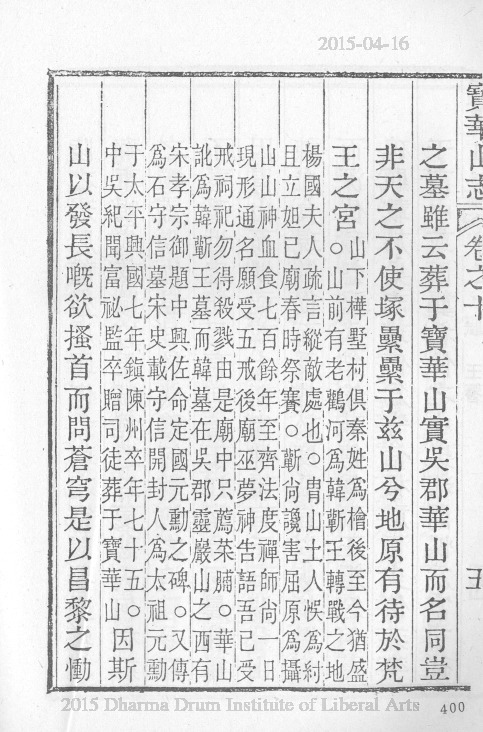 2015-04-16
寶華山志
卷之十
五
之墓雖云葬于寶華山實吳郡華山而名同豈
非天之不使塚纍纍于兹山兮地原有待於梵
王之宮
山下樺墅村俱秦姓爲檜後至今猶盛
○山前有老鸛河爲韓蘄王轉戰之地
楊國夫人疏言縱敵處也○冑山土人悞爲紂
且立妲己廟春時祭賽○靳尚讒害屈原爲攝
山山神血食七百餘年至齊法度禪師尚一日
現形通名願受五戒後廟巫夢神告語吾已受
戒祠祀勿得殺戮由是廟中只薦菜脯○華山
訛爲韓蘄王墓而韓墓在吳郡靈嚴山之西有
宋孝宗御題中興佐命定國元勳之碑○又傳
爲石守信墓宋史載守信開封人爲太祖元勳
于太平興國七年鎮陳州卒年七十五○
中吳紀聞富祕監卒贈司徒葬于寶華山
因斯
山以發長嘅欲搔首而問蒼穹是以昌黎之慟
2015 Dharma Drum Institute of Liberal Arts
400